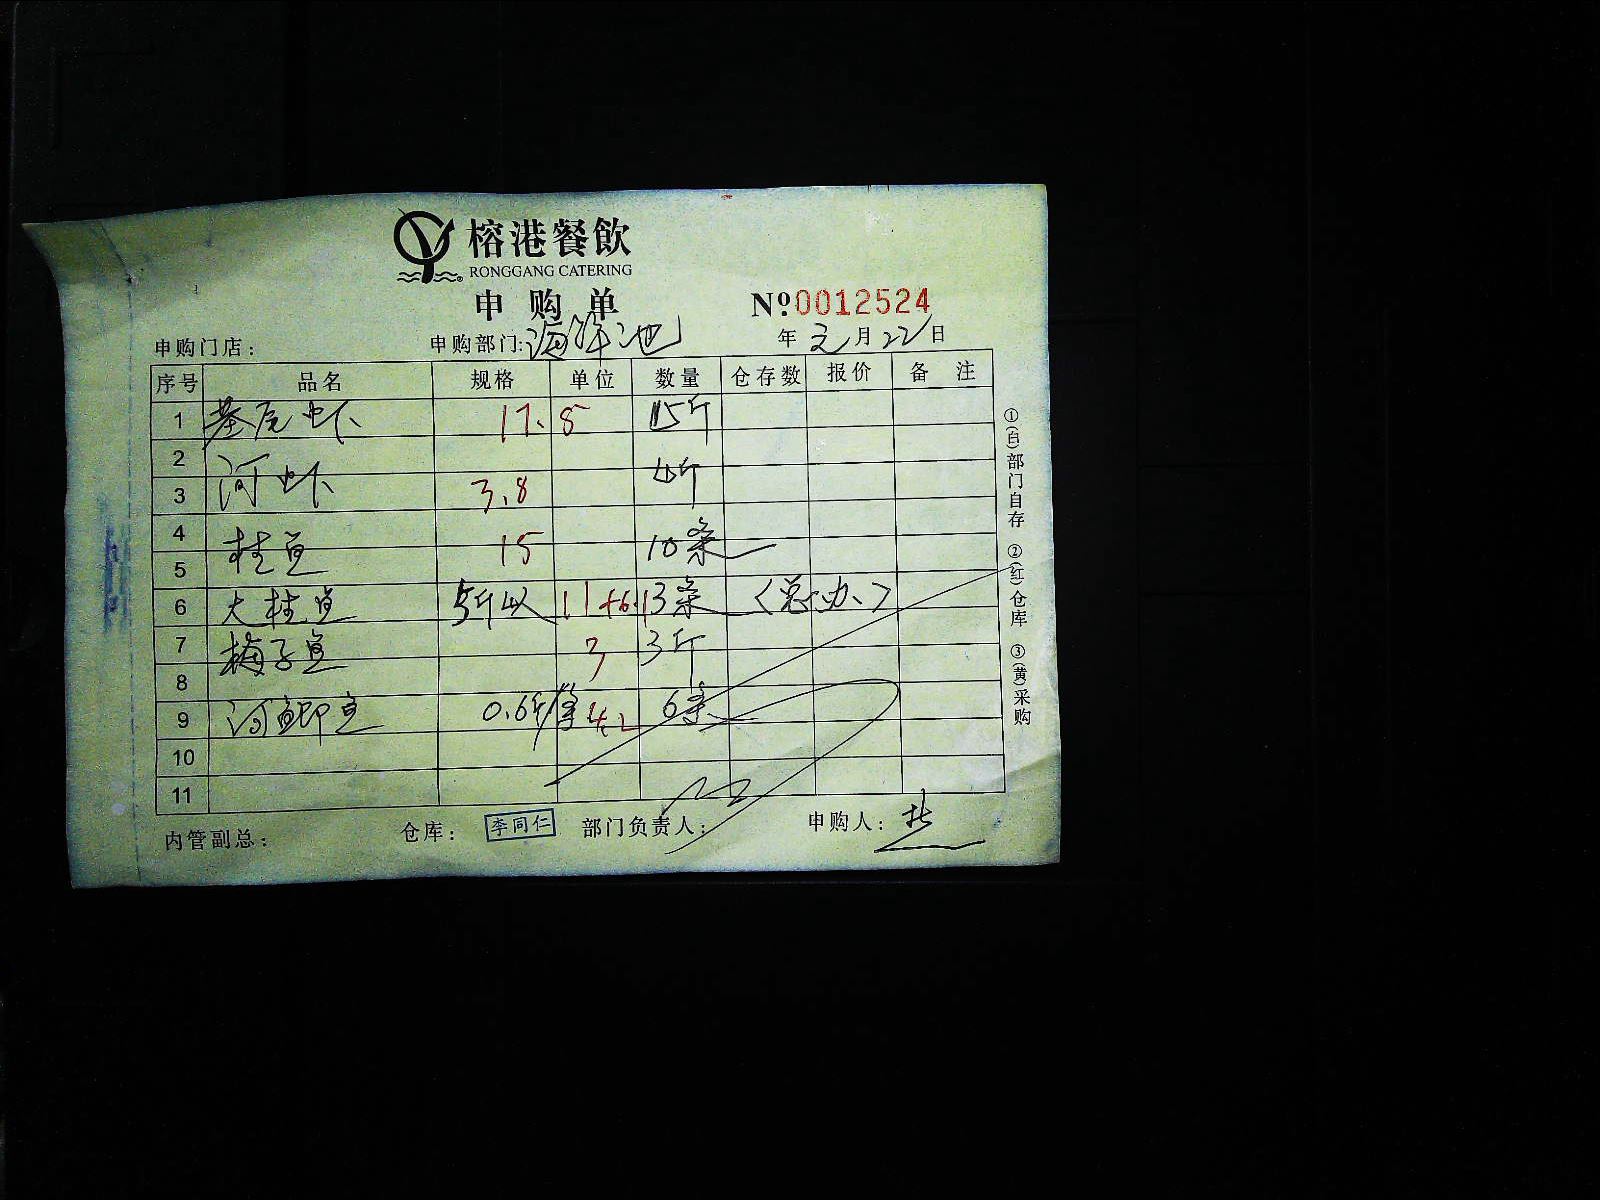 榕港餐飲
RONGGANG CATERING
申购单 №0012524
申购门店: 申购部门: 海鲜池 年 元月22日
序号 品名 规格 单位 数量 仓存数 报价 备注
1 基尾虾 17.8 15斤
2
3 河虾 3.8 4斤
4
5 桂鱼 15 10条
6 大桂鱼 5斤以 11+6.1 3条 〈总办〉
7 梅子鱼 3 3斤
8
9 河鲫鱼 0.6斤/条 4.2 6条
10
11
内管副总: 仓库: 李同仁 部门负责人: 申购人:
①(白)部门自存 ②(红)仓库 ③(黄)采购